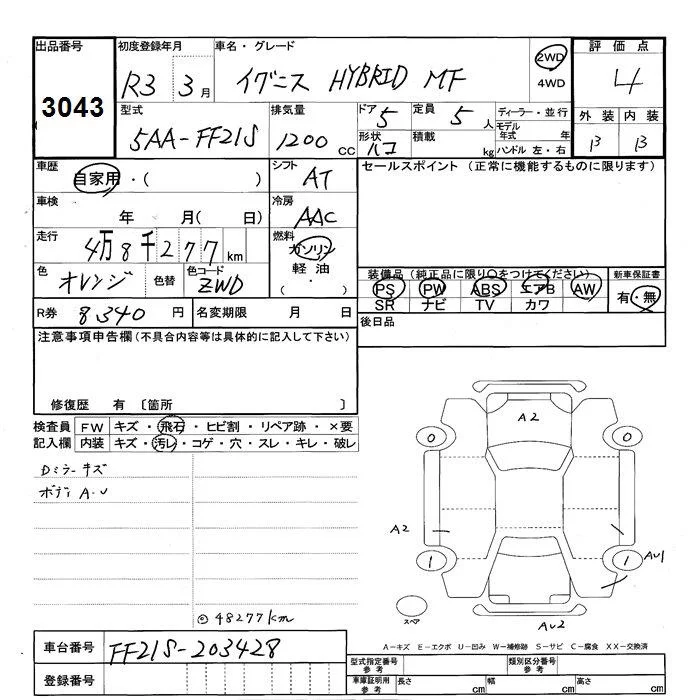 出品番号 初度登録年月 車名・グレード 評価点
3043 R3 3月 イグニス HYBRID MF 2WD 4WD 4
型式 排気量 ドア 5 定員 5人 ディーラー・並行 外装 内装
5AA-FF21S 1200cc 形状 ハコ 積載 kg モデル年式 年 B B
ハンドル 左・右
車歴 自家用・( ) シフト AT セールスポイント (正常に機能するものに限ります)
車検 年 月( 日) 冷房 AAC
走行 4万8千277km 燃料 ガソリン 軽油 ( ・ )
色 オレンジ 色替 色コード ZWD
装備品 (純正品に限り○をつけてください) 新車保証書
PS PW ABS エアB AW 有・無
SR ナビ TV カワ
R券 8340円 名変期限 月 日 後日品
注意事項申告欄 (不具合内容等は具体的に記入して下さい)
修復歴 有 〔箇所 〕
検査員 FW キズ・飛石・ヒビ割・リペア跡・×要
記入欄 内装 キズ・汚レ・コゲ・穴・スレ・キレ・破レ
Dミラーキズ
ボディ A・U
A2
0 0
A2
1 1 AU1
スペア
AU2
◎48277km
A-キズ E-エクボ U-凹み W-補修跡 S-サビ C-腐食 XX-交換済
車台番号 FF21S-203428
登録番号
型式指定番号 参考 類別区分番号 参考
車庫証明用 参考 長さ cm 幅 cm 高さ cm